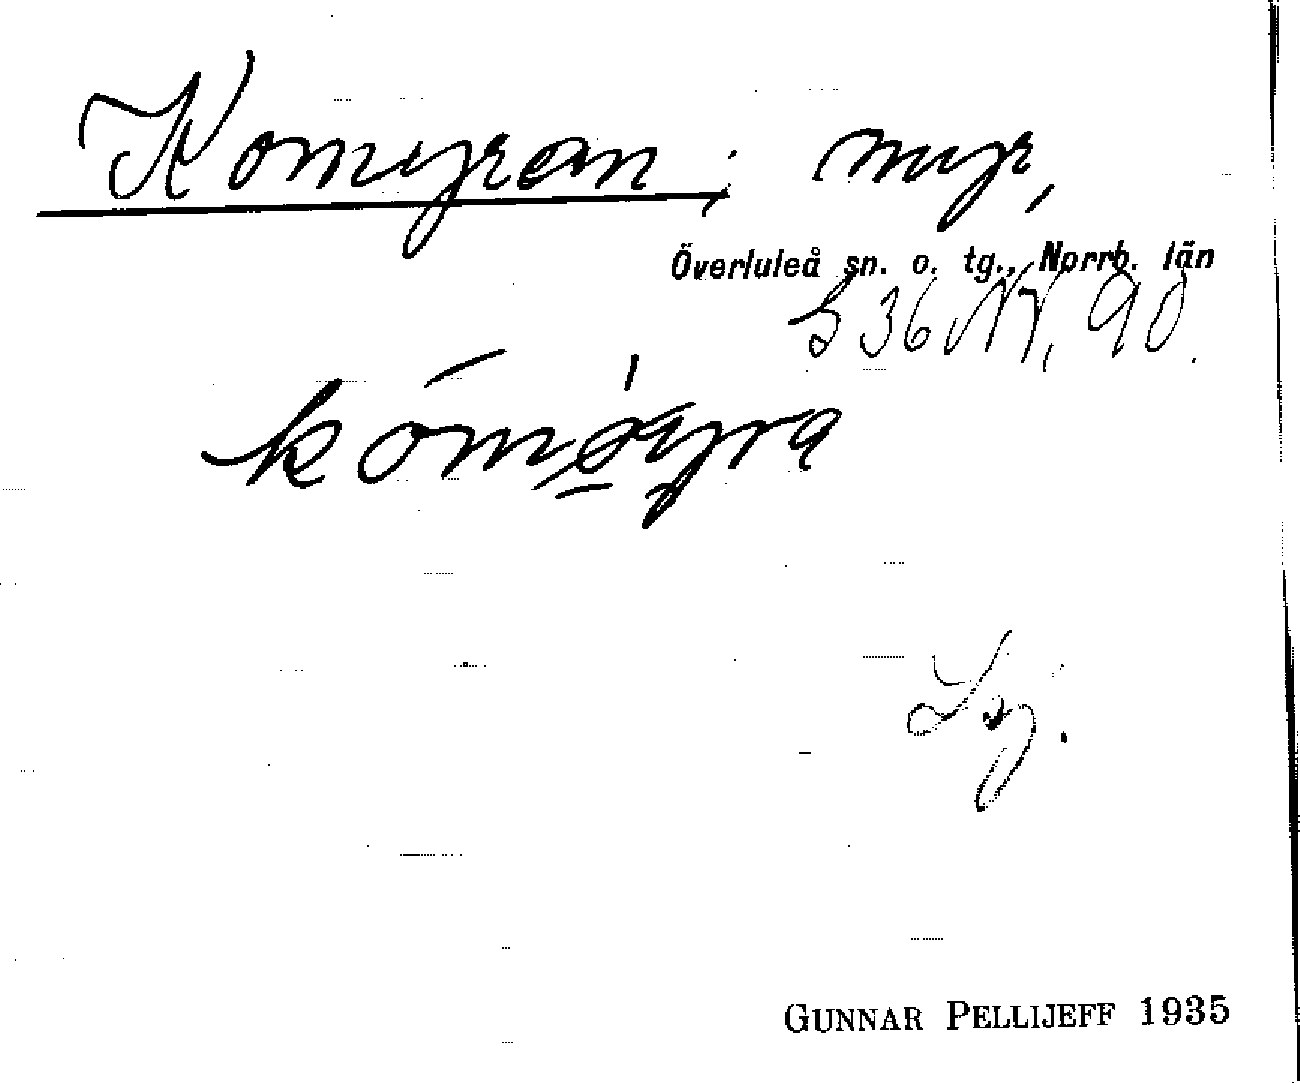 Komyran; myr,
Överluleå sn. o. tg., Norrb. län
b 36 NV, 90.
Lij.
GUNNAR PELLIJEFF 1935